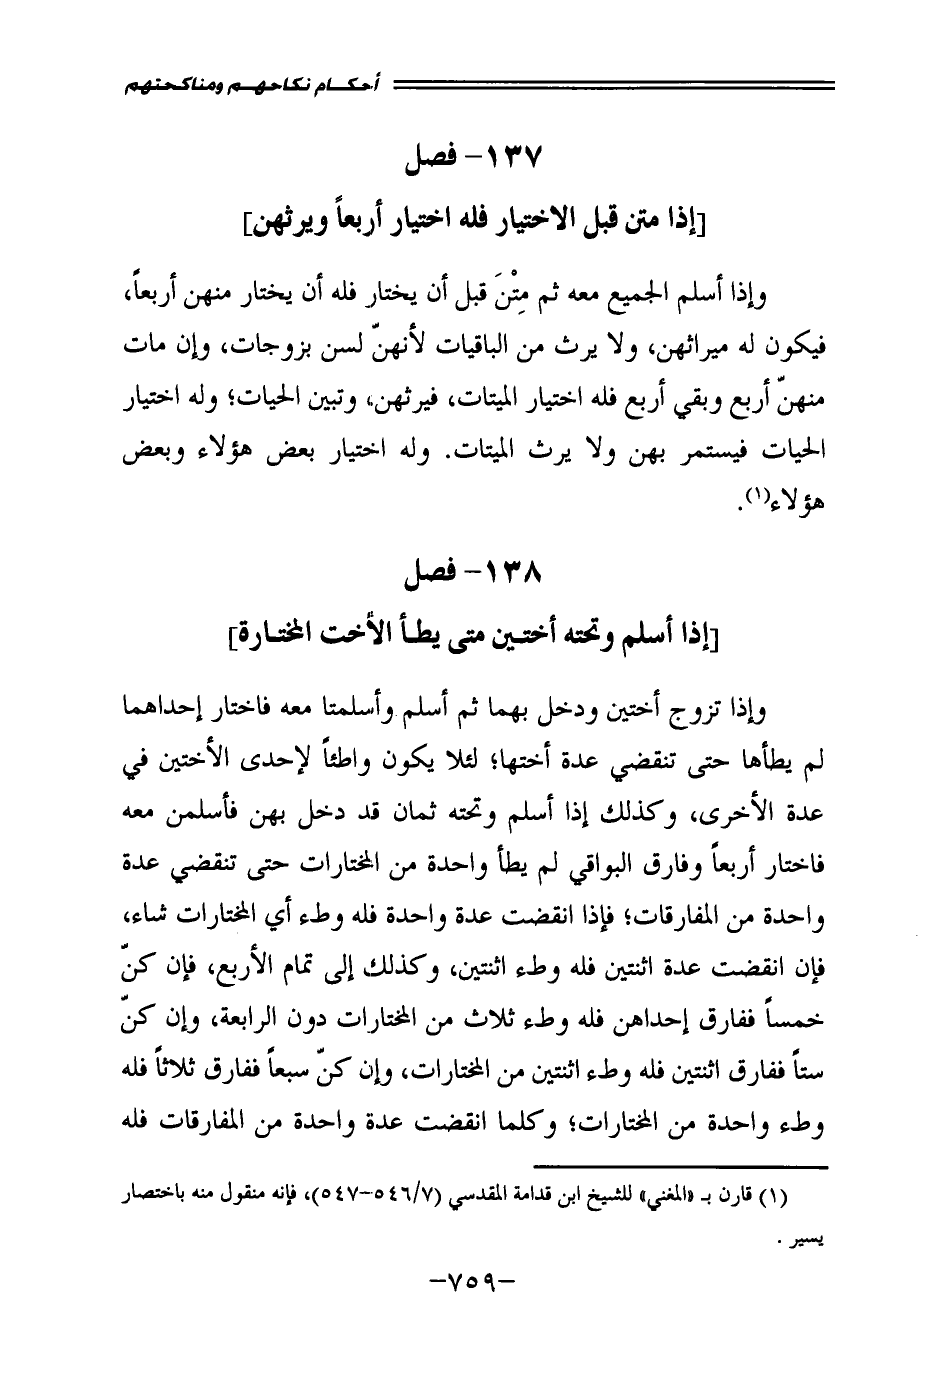 أحكام نكاحهم ومناكحتهم
١٣٧- فصل
[إذا متن قبل الاختيار فله اختيار أربعاً ويرثهن]
وإذا أسلم الجميع معه ثم مِتْنَ قبل أن يختار فله أن يختار منهن أربعاً،
فيكون له ميراثهن، ولا يرث من الباقيات لأنهنّ لسن بزوجات، وإن مات
منهنّ أربع وبقي أربع فله اختيار الميتات، فيرثهن، وتبين الحيات؛ وله اختيار
الحيات فيستمر بهن ولا يرث الميتات. وله اختيار بعض هؤلاء وبعض
هؤلاء(١).
١٣٨- فصل
[إذا أسلم وتحته أختين متى يطأ الأخت المختارة]
وإذا تزوج أختين ودخل بهما ثم أسلم وأسلمتا معه فاختار إحداهما
لم يطأها حتى تنقضي عدة أختها؛ لئلا يكون واطئاً لإحدى الأختين في
عدة الأخرى، وكذلك إذا أسلم وتحته ثمان قد دخل بهن فأسلمن معه
فاختار أربعاً وفارق البواقي لم يطأ واحدة من المختارات حتى تنقضي عدة
واحدة من المفارقات؛ فإذا انقضت عدة واحدة فله وطء أي المختارات شاء،
فإن انقضت عدة اثنتين فله وطء اثنتين، وكذلك إلى تمام الأربع، فإن كنّ
خمساً ففارق إحداهن فله وطء ثلاث من المختارات دون الرابعة، وإن كنّ
ستاً ففارق اثنتين فله وطء اثنتين من المختارات، وإن كنّ سبعاً ففارق ثلاثاً فله
وطء واحدة من المختارات؛ وكلما انقضت عدة واحدة من المفارقات فله
(١) قارن بـ «المغني» للشيخ ابن قدامة المقدسي (٥٤٦/٧-٥٤٧)، فإنه منقول منه باختصار
يسير .
-٧٥٩-